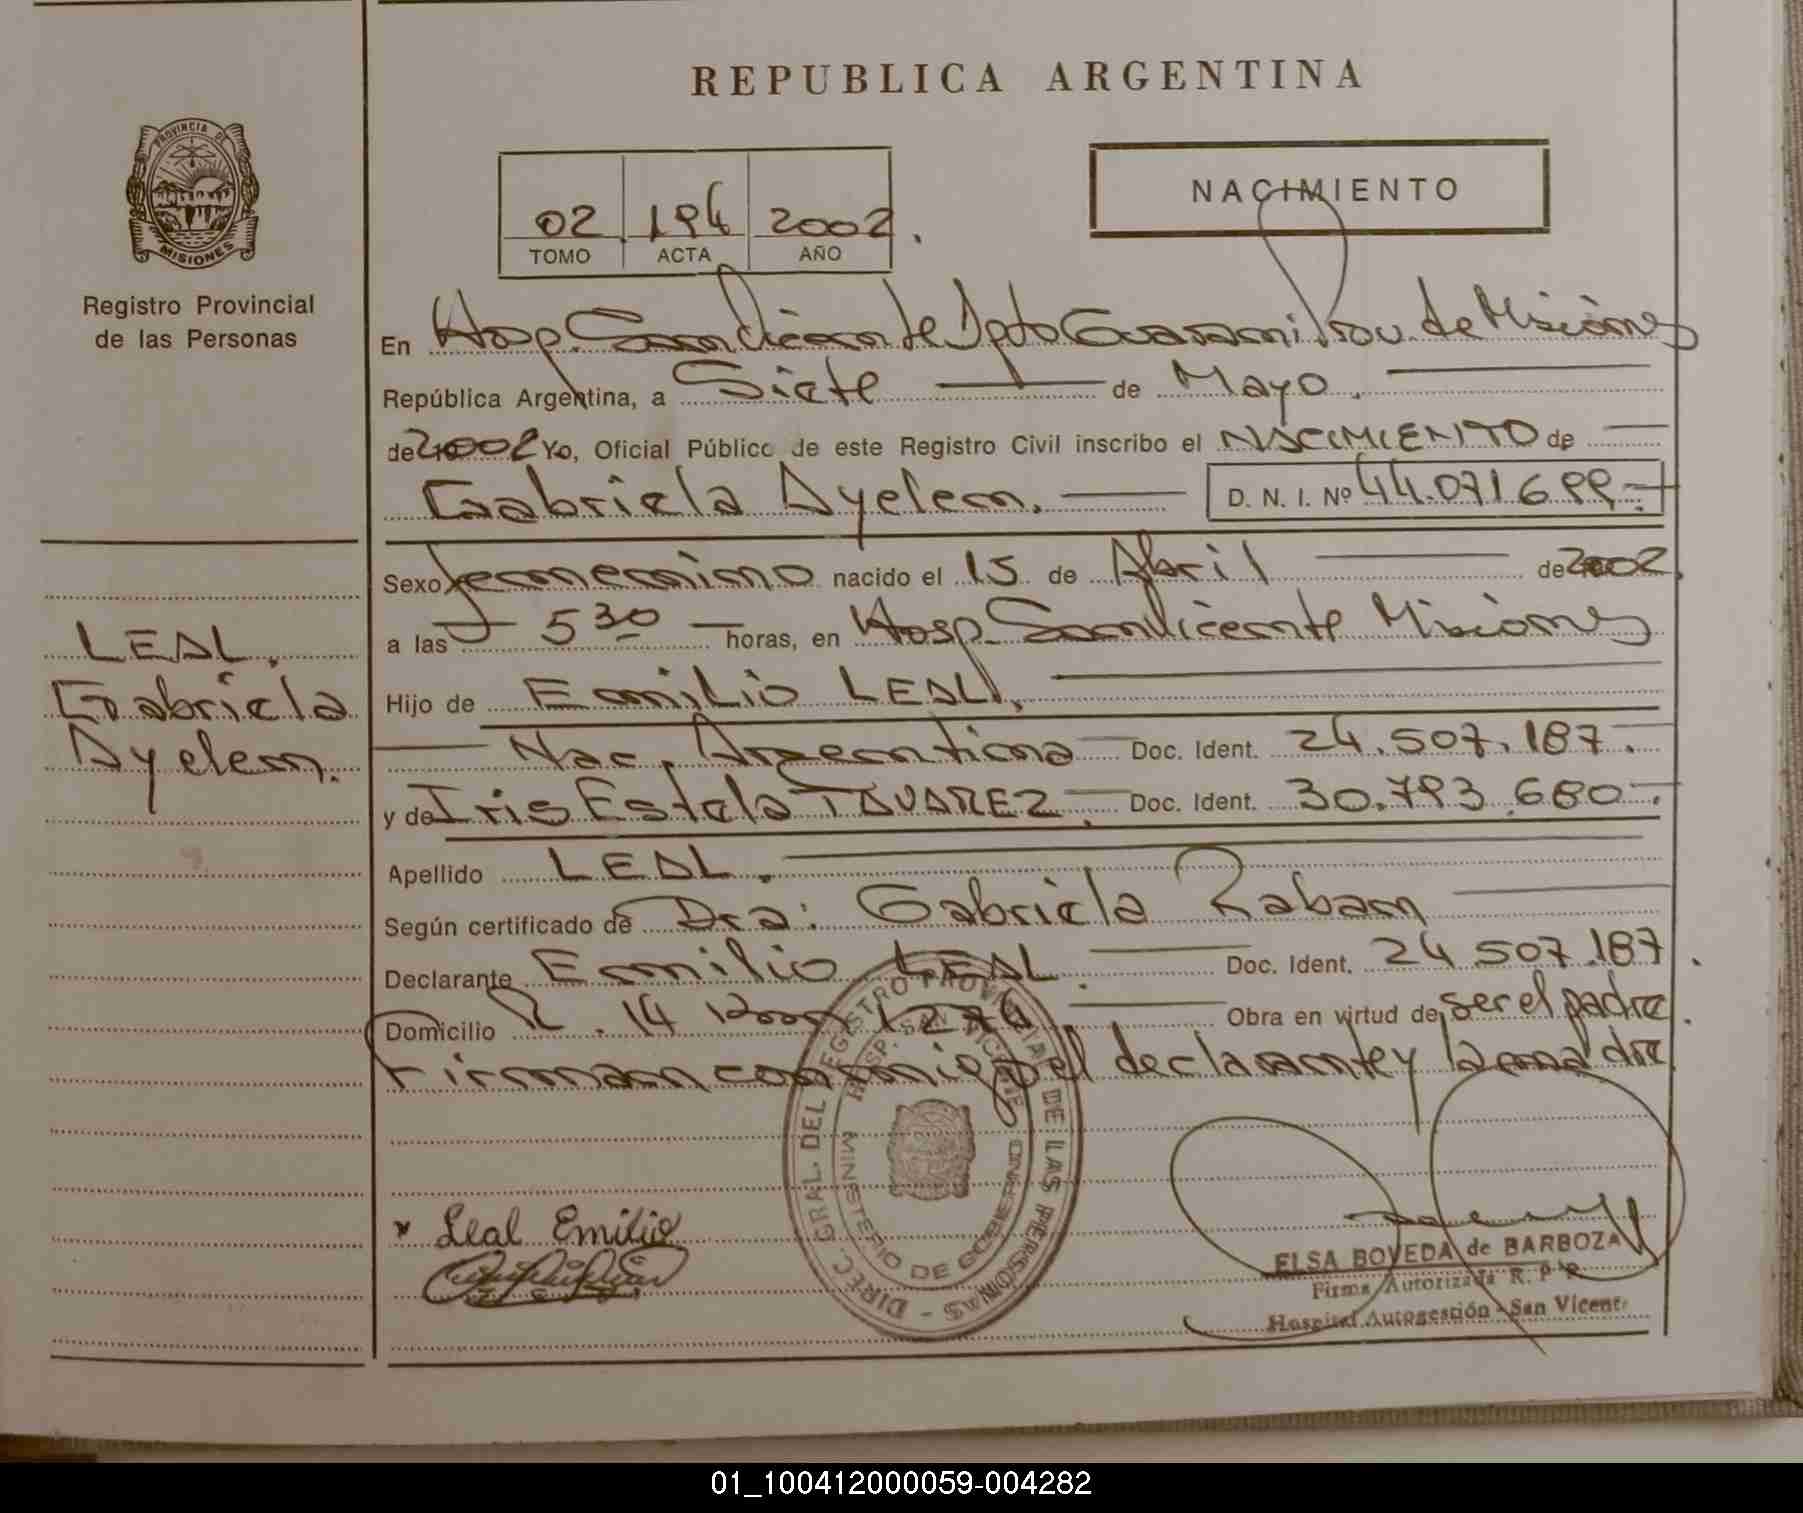 REPUBLICA ARGENTINA
PROVINCIA DE
MISIONES
Registro Provincial
de las Personas
NACIMIENTO
02 194 2002
TOMO ACTA AÑO
En Hosp. San Vicente Dpto Guarani Prov. de Misiones
República Argentina, a Siete de Mayo
de 2002 Yo, Oficial Público de este Registro Civil inscribo el NACIMIENTO de
Gabriela Ayelem. D. N. I. Nº 44.071699
Sexo femenino nacido el 15 de Abril de 2002
a las 5 30 horas, en Hosp. San Vicente Misiones
Hijo de Emilio LEAL
Nac. Argentina Doc. Ident. 24.507.187
y de Iris Estela TAVAREZ Doc. Ident. 30.793.680
Apellido LEAL
Según certificado de Dra: Gabriela Raban
Declarante Emilio LEAL Doc. Ident. 24 507.187
Domicilio R. 14 1274 Obra en virtud de ser el padre
Firman conmigo el declarante y la madre
LEAL.
Gabriela
Ayelem.
DIREC. GRAL. DEL REGISTRO PROVINCIAL DE LAS PERSONAS -
HOSP. SAN VICENTE
MINISTERIO DE GOBIERNO
Leal Emilio
ELSA BOVEDA de BARBOZA
Firma Autorizada R. P. P.
Hospital Autogestión - San Vicente
01_100412000059-004282